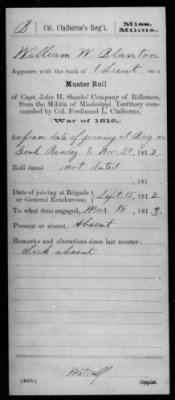 B | Col. Claiborne's Reg't. | Miss. Militia.
William W. Blanton
Appears with the rank of 1 Lieut. on a
Muster Roll
of Capt. John H. Shanks' Company of Riflemen,
from the Militia of Mississippi Territory commanded by Col. Ferdinand L. Claiborne,
War of 1812,
for from date of joining at Brig or
Genl Rendez to Nov. 29, 1812
Roll dated not dated
, 181
Date of joining at Brigade or General Rendezvous, Sept. 15, 1812
To what time engaged, Mar. 15, 1813.
Present or absent, Absent
Remarks and alterations since last muster:
Sick absent.
Metcalf
Copyist.